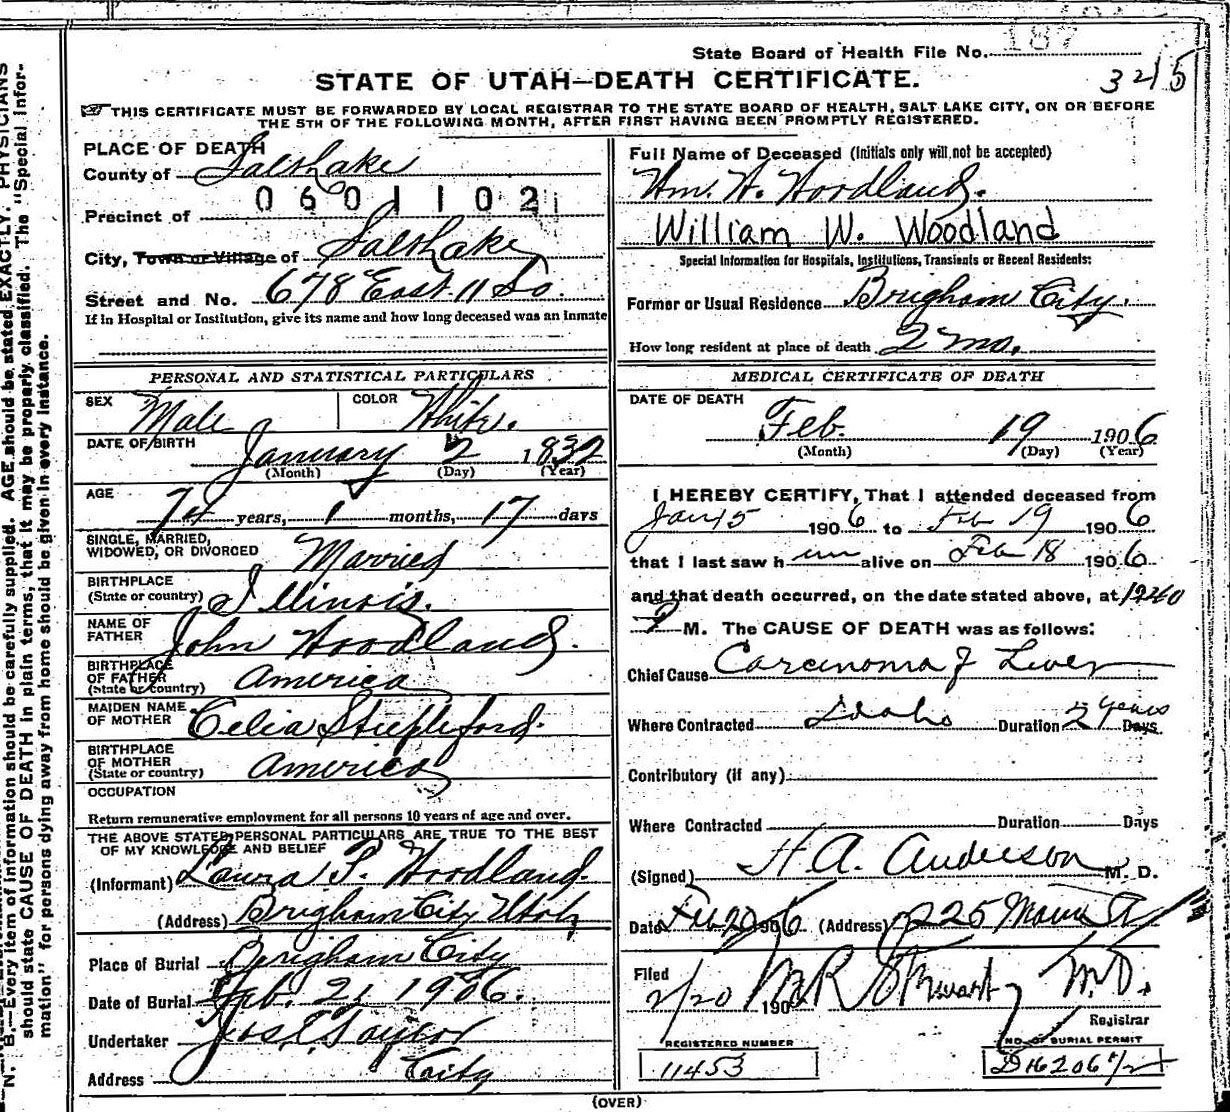 State Board of Health File No. 187
3215
STATE OF UTAH—DEATH CERTIFICATE.
THIS CERTIFICATE MUST BE FORWARDED BY LOCAL REGISTRAR TO THE STATE BOARD OF HEALTH, SALT LAKE CITY, ON OR BEFORE
THE 5TH OF THE FOLLOWING MONTH, AFTER FIRST HAVING BEEN PROMPTLY REGISTERED.
PLACE OF DEATH
County of Salt Lake
0601102
Precinct of
City, Town or Village of Salt Lake
Street and No. 678 East 11 So.
If in Hospital or Institution, give its name and how long deceased was an inmate
Full Name of Deceased (Initials only will not be accepted)
Wm. W. Woodland.
William W. Woodland
Special Information for Hospitals, Institutions, Transients or Recent Residents:
Former or Usual Residence Brigham City.
How long resident at place of death 2 mo.
PERSONAL AND STATISTICAL PARTICULARS
SEX Male COLOR White.
DATE OF BIRTH January 2 1832
(Month) (Day) (Year)
AGE 74 years, 1 months, 17 days
SINGLE, MARRIED,
WIDOWED, OR DIVORCED Married
BIRTHPLACE
(State or country) Illinois.
NAME OF
FATHER John Woodland.
BIRTHPLACE
OF FATHER
(State or country) America
MAIDEN NAME
OF MOTHER Celia Stiepleford.
BIRTHPLACE
OF MOTHER
(State or country) America
OCCUPATION
Return remunerative employment for all persons 10 years of age and over.
THE ABOVE STATED PERSONAL PARTICULARS ARE TRUE TO THE BEST
OF MY KNOWLEDGE AND BELIEF
(Informant) Laura P. Woodland.
(Address) Brigham City Utah
Place of Burial Brigham City
Date of Burial Feb. 21 1906.
Undertaker Jos E Taylor
Address City
MEDICAL CERTIFICATE OF DEATH
DATE OF DEATH
Feb. 19 1906
(Month) (Day) (Year)
I HEREBY CERTIFY, That I attended deceased from
Jan 15 1906 to Feb 19 1906
that I last saw him alive on Feb 18 1906
and that death occurred, on the date stated above, at 1240
P M. The CAUSE OF DEATH was as follows:
Chief Cause Carcinoma of Liver
Where Contracted Idaho Duration 2 years Days
Contributory (if any)
Where Contracted Duration Days
(Signed) H. A. Anderson M. D.
Date Feb 20 1906 (Address) 225 Main St
Filed
2/20 190 M R Stewart M.D.
Registrar
REGISTERED NUMBER
11453
NO. OF BURIAL PERMIT
D 16206 1/2
(OVER)
N. B.—Every item of information should be carefully supplied. AGE should be stated EXACTLY. PHYSICIANS
should state CAUSE OF DEATH in plain terms, that it may be properly classified. The "Special Infor-
mation" for persons dying away from home should be given in every instance.